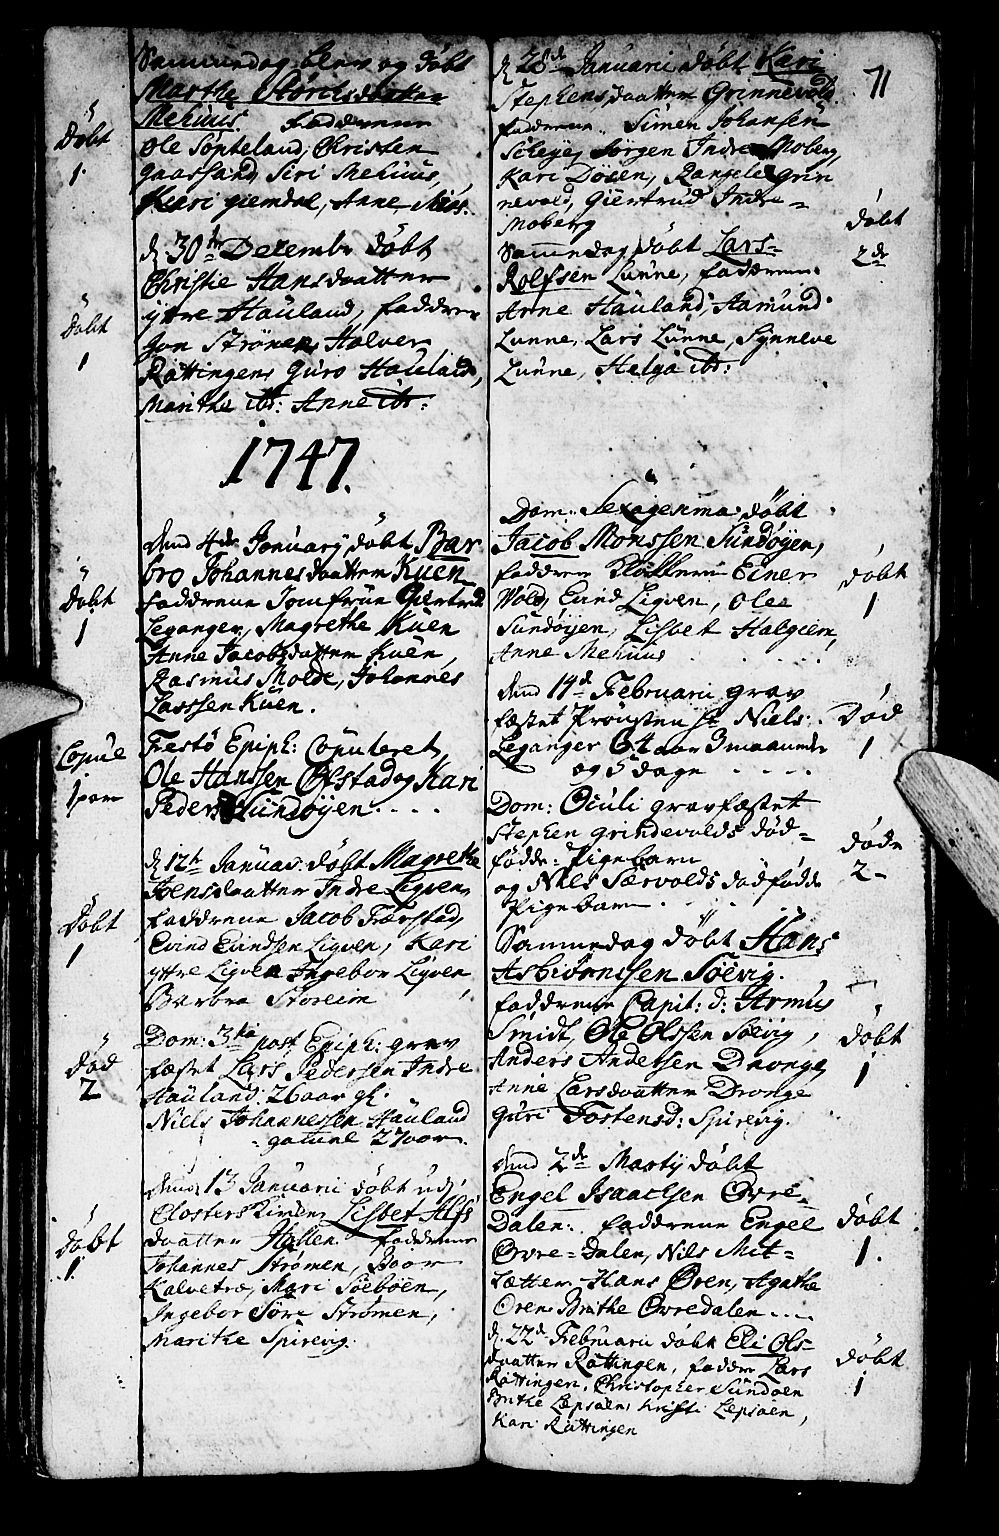 Sammedag blev og døbt
Marthe Størchsdaatter
Mehuus. fadderne
Ole Sønteland, Christen
Gaassand, Siri Mehuus,
Kari giemdal, Anne
Døbt
1.
d 30te Decembr døbt
Christie Hansdaatter
yttre Hauland, faddere
Jon Strønen, Halver
Røttingen, Guro Hauland,
Marithe ibt: Anne ibt:
Døbt
1
1747.
dend 4de Januarj døbt Bar
bro Johannesdaatter Kuen
fadderne Jomfrue Giertrud
Leganger, Magrethe Kuen
Anne Jacobsdaatter Kuen,
Rasmus Molde, Johannes
Larssen Kuen.
Døbt
1
Festo Epiph: Copuleret,
Ole Hanssen Ofstad og Kari
Peders Sundøyen . . . .
Copul
1 par
d 12te Januar: døbt Magrethe
Jensdaatter Indre Ligven
fadderne Jacob Færstad,
Evind Evindsen Ligven, Kari
yttre Ligven Ingebor Ligven
Barbra Storeim
Døbt
1
Dom: 3tia post Epiph: grav
fæstet Lars Pedersen Indre
Hauland: 26 aar gl.
Niels Johannessen Hauland
gammel 27 aar.
Død
2
dend 13 Januarii døbt udj
Closters Kirken Lisbet Alfs
daatter Hatlen fadderne
Johannes Strømen, Boor
Kalvetræ, Mari Søebøen,
Ingebor Søre Strømen,
Marithe Spirevig.
Døbt
1.
71
d 28de Januarii døbt Kari
Stephensdaatter Grinnevold.
fadderne Simen Johansen
Scheye, Jørgen Indre Moberg,
Kari Døsen, Rangele Grin
nevold, Giertrud Indre-
Moberg
Sammedag døbt Lars-
Rolfsen Lunne, fadderne
Arne Hauland, Aamund
Lunne, Lars Lunne, Synneve
Lunne, Helga ibt:
døbt
2de
Dom: Sexagesima døbt
Jacob Monssen Sundøyen,
faddere Kløkkeren Einer
Wold, Evind Ligven, Ole
Sundøyen, Lisbet Halgien,
Anne Mehuus
døbt
1
dend 14de Februarii grav
fæstet Prousten Sr Niels
Leganger 64 aar 3 maaneder
og 5 dage
Død
1
Dom: Oculi gravfæstet
Stephen grindevolds død-
fødde Pigebarn
og Niels Særvolds dødfødde
Pigebarn
døde
2-
Sammedag døbt Hans
Asbiørnssen Søevig.
fadderne Capit: d: Armus
Smidt, Ole Olssen Søevig,
Anders Andersen Drange,
Anne Larsdaatter Drange
Guri Tortensd: Spirevig.
døbt
1
dend 2de Martij døbt
Engel Isaachsen Øvre-
Dalen: fadderne Engel
Øvre-Dalen, Niels Mit-
Sætter, Hans Øren, Agathe
Øren Brithe Øvredalen . . .
døbt
1.
d. 22de Februarii døbt Eli Ols-
daatter Røttingen, faddere Lars
Røttingen, Christopher Sundøen
Brithe Lepsøen, Kristi Lepsøen,
Kari Røttingen
døbt
1